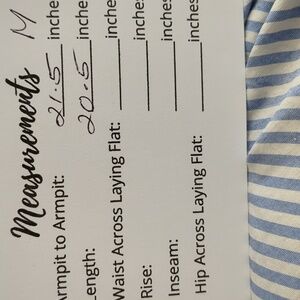 Measurements M
Armpit to Armpit: 21.5 inches
Length: 20.5 inches
Waist Across Laying Flat: inches
Rise: inches
Inseam: inches
Hip Across Laying Flat: inches